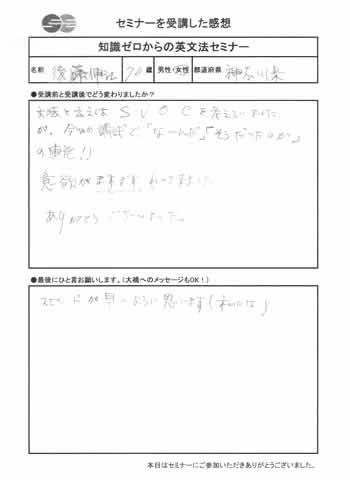 セミナーを受講した感想
知識ゼロからの英文法セミナー
名前 後藤 70歳 男性・女性 都道府県 神奈川県
●受講前と受講後でどう変わりましたか?
文法と言えば S V O C を考えていました
が、今回の講式で「なーんだ」「そうだったのか」
の連発!!
意欲がますます わいてきました
ありがとうございました。
●最後にひと言お願いします。(大橋へのメッセージもOK!)
スピードが早いように思います(私には)
本日はセミナーにご参加いただきありがとうございました。